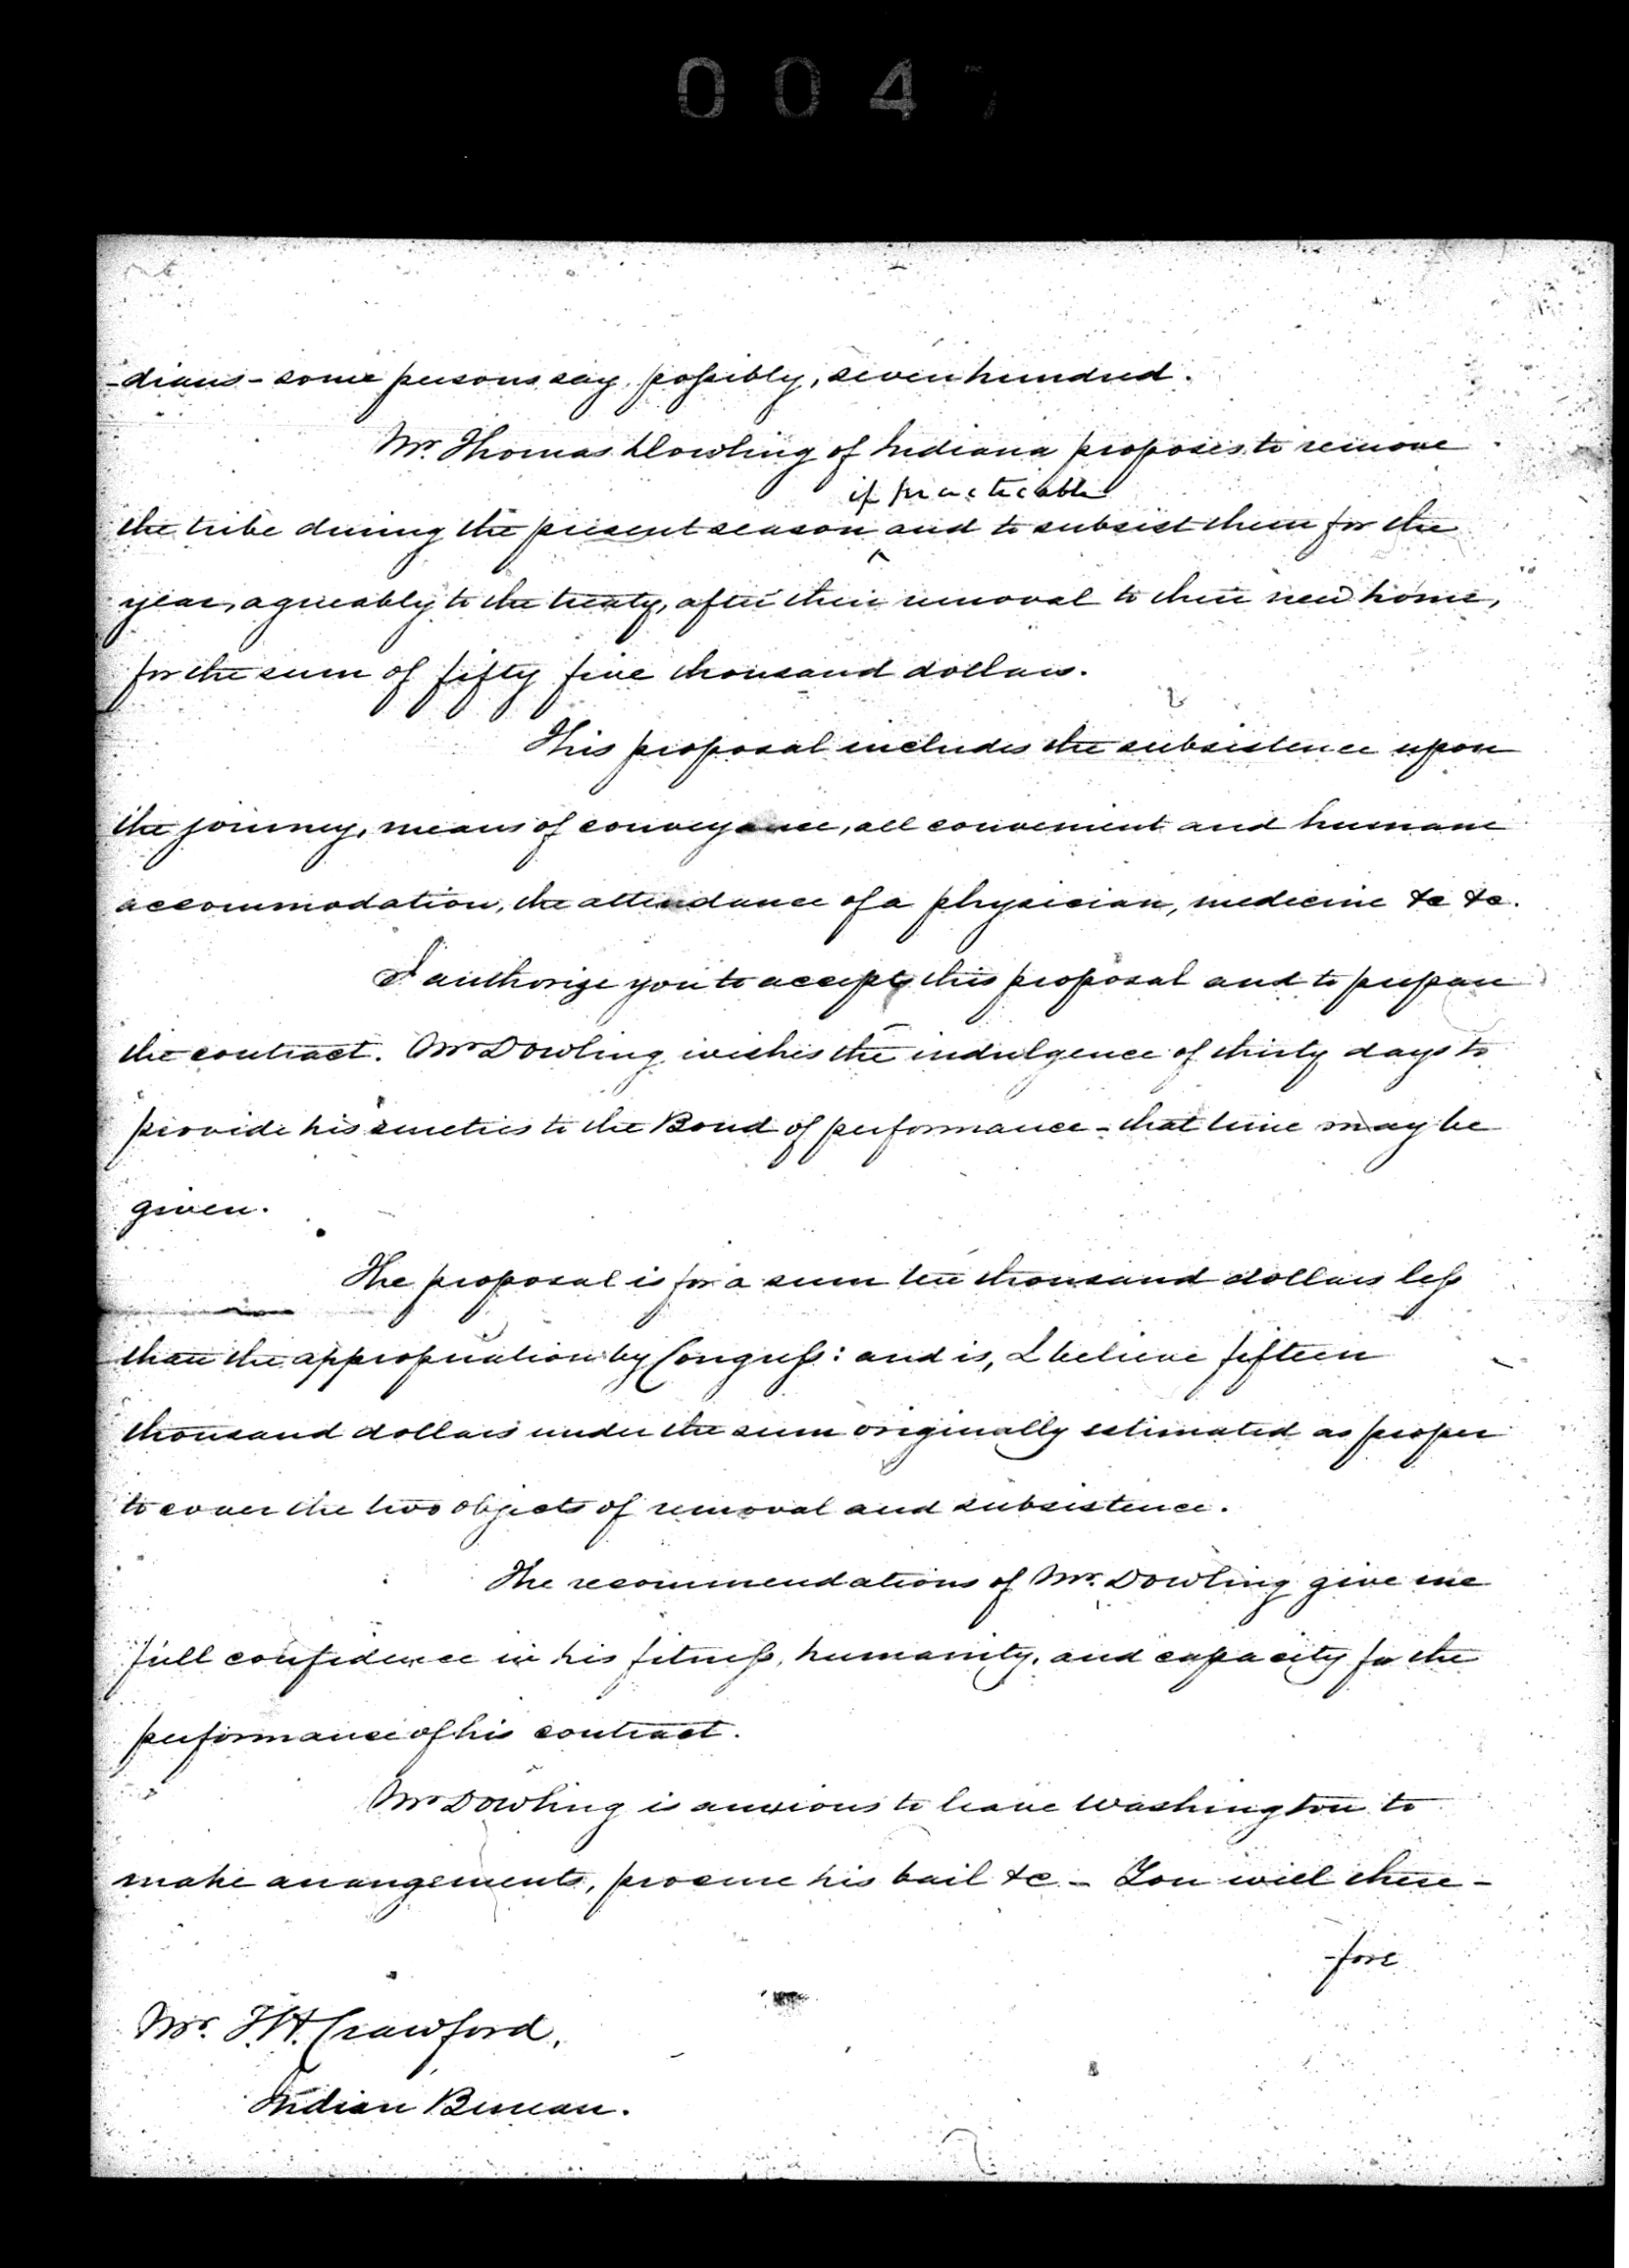 0047
-dians - some persons say, possibly, seven hundred.
Mr. Thomas Dowling of Indiana proposes to remove
if practicable
the tribe during the present season and to subsist them for the
year, agreeably to the treaty, after their removal to their new home,
for the sum of fifty five thousand dollars.
This proposal includes the subsistence upon
the journey, means of conveyance, all convenient and humane
accommodation, the attendance of a physician, medicine &c &c.
I authorize you to accept this proposal and to prepare
the contract. Mr Dowling wishes the indulgence of thirty days to
provide his sureties to the Bond of performance - that time may be
given.
The proposal is for a sum ten thousand dollars less
than the appropriation by Congress: and is, I believe fifteen
thousand dollars under the sum originally estimated as proper
to cover the two objects of removal and subsistence.
The recommendations of Mr. Dowling give me
full confidence in his fitness, humanity, and capacity for the
performance of his contract.
Mr Dowling is anxious to leave Washington to
make arrangements, procure his bail &c - You will there-
-fore
Mr. T. H. Crawford,
Indian Bureau.